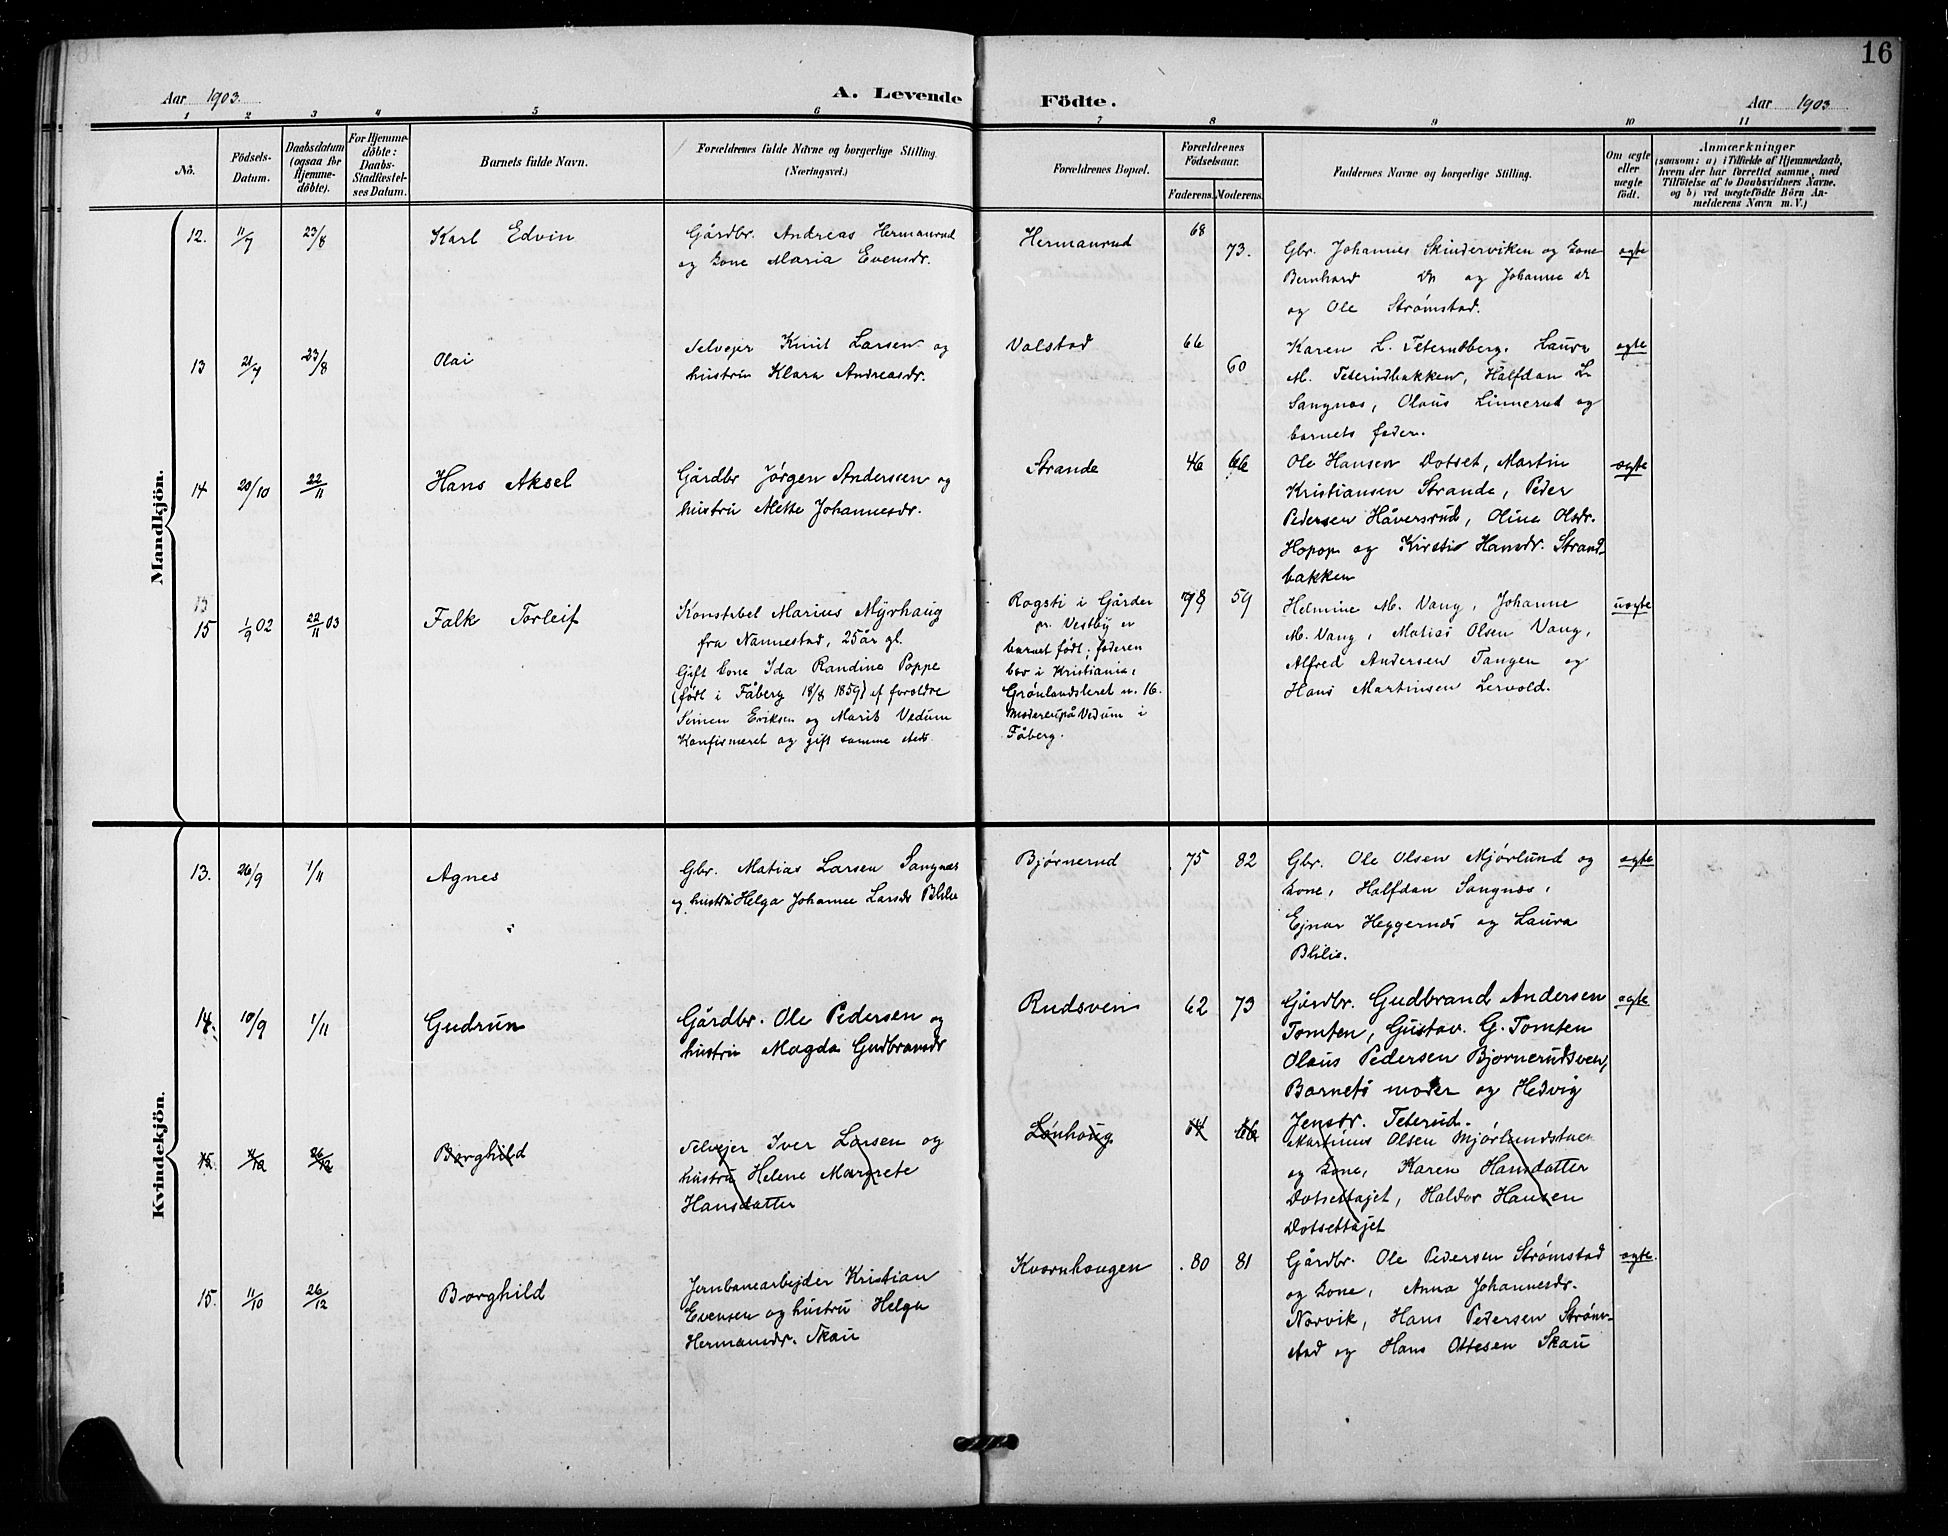 16
Aar 1903.
A. Levende Födte.
Aar 1903
1 2 3 4 5 6 7 8 9 10 11
Nö.
Födsels-
Datum.
Daabsdatum
(ogsaa for
Hjemme-
döbte).
For Hjemme-
döbte:
Daabs-
Stadfæstel-
ses Datum.
Barnets fulde Navn.
Forældrenes fulde Navne og borgerlige Stilling.
(Næringsvei.)
Forældrenes Bopæl.
Forældrenes
Födselsaar.
Faderens.
Moderens.
Faddernes Navne og borgerlige Stilling.
Om ægte
eller
uægte
födt.
Anmærkninger
(saasom: a) i Tilfælde af Hjemmedaab,
hvem der har forrettet samme, med
Tilföielse af to Daabsvidners Navne,
og b) ved uægtefödte Börn An-
melderens Navn m. V.)
Mandkjön.
12. 11/7 23/8 Karl Edvin
Gårdbr. Andreas Hermanrud
og kone Maria Evensdr.
Hermanrud 68 73.
Gbr. Johannes Skinderviken og kone
Bernhard Do og Johanne do
og Ole Strømstad.
ægte
13 21/7 23/8 Olai
Selvejer Knut Larsen og
hustru Klara Andreasdr.
Valstad 66 60
Karen L. Teterudberg. Laura
M. Teterudbakken, Halfdan L.
Sangnæs, Olaus Linnerud og
barnets fader.
ægte
14 20/10 22/11 Hans Aksel
Gårdbr Jørgen Anderssen og
hustru Mette Johannesdr.
Strande 46 66
Ole Hansen Dotset, Martin
Kristiansen Strande, Peder
Pedersen Håversrud, Olina Olsdr.
Hopop og Kirstie Hansdr. Strand-
bakken
ægte
15
15 1/9 02 22/11 03 Falk Torleif
Konstabel Marius Myrhaug
fra Nannestad, 25 år gl.
Gift kone Ida Randine Poppe
(født i Fåberg 18/8 1859) af forældre
Simen Eriksen og Marit Vedum
Konfirmeret og gift samme steds.
Rogsti i Gårder
pr. Vestby er
barnet født; faderen
bor i Kristiania,
Grønlandsleret n. 16.
Moderen på Vedum i
Fåberg.
78 59
Helmine M. Vang, Johanne
M. Vang, Matias Olsen Vang,
Alfred Andersen Tangen og
Hans Martinsen Lervold.
uægte
Kvindekjön.
13. 26/9 1/11 Agnes
Gbr. Matias Larsen Sangnæs
og hustru Helga Johanne Larsdr Blilie
Bjørnerud 75 82
Gbr. Ole Olsen Mjørlund og
kone, Halfdan Sangnæs,
Ejnar Heggernæs og Laura
Blilie.
ægte
14. 10/9 1/11 Gudrun
Gårdbr. Ole Pedersen og
hustru Magda Gudbransdr
Rudsvein 62 73
Gårdbr. Gudbrand Andersen
Tomten, Gustav. G. Tomten
Olaus Pedersen Bjørnerudsven,
Barnets moder og Hedvig
Jensdr. Teterud.
ægte
15. 26/12 Borghild
Selvejer Iver Larsen og
hustru Helene Margrete
Hansdatter
Lønhoug 66
Martinus Olsen Mjørlundstuen
og kone, Karen Hansdatter
Dotsettajet, Haldor Hansen
Dotsettajet
15. 11/10 26/12 Borghild
Jernbanearbejder Kristian
Evensen og hustru Helga
Hermansdr. Skau
Kvarnhougen 80 81
Gårdbr. Ole Pedersen Strømstad
og kone, Anna Johannesdr.
Norvik, Hans Pedersen Strøm-
stad og Hans Ottesen Skau
ægte.